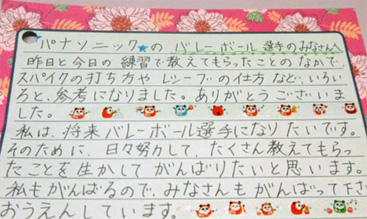 パナソニック★の バレーボール選手のみなさんへ
昨日と今日の練習で教えてもらったことのなかで、
スパイクの打ち方や レシーブの仕方など…いろい
ろと、参考になりました。ありがとうございま
した。
私は、将来バレーボール選手になりたいです。
そのために、日々努力して、たくさん教えてもらっ
たことを生かして がんばりたいと思います。
私もがんばるので、みなさんもがんばって下さ
おうえんしています。